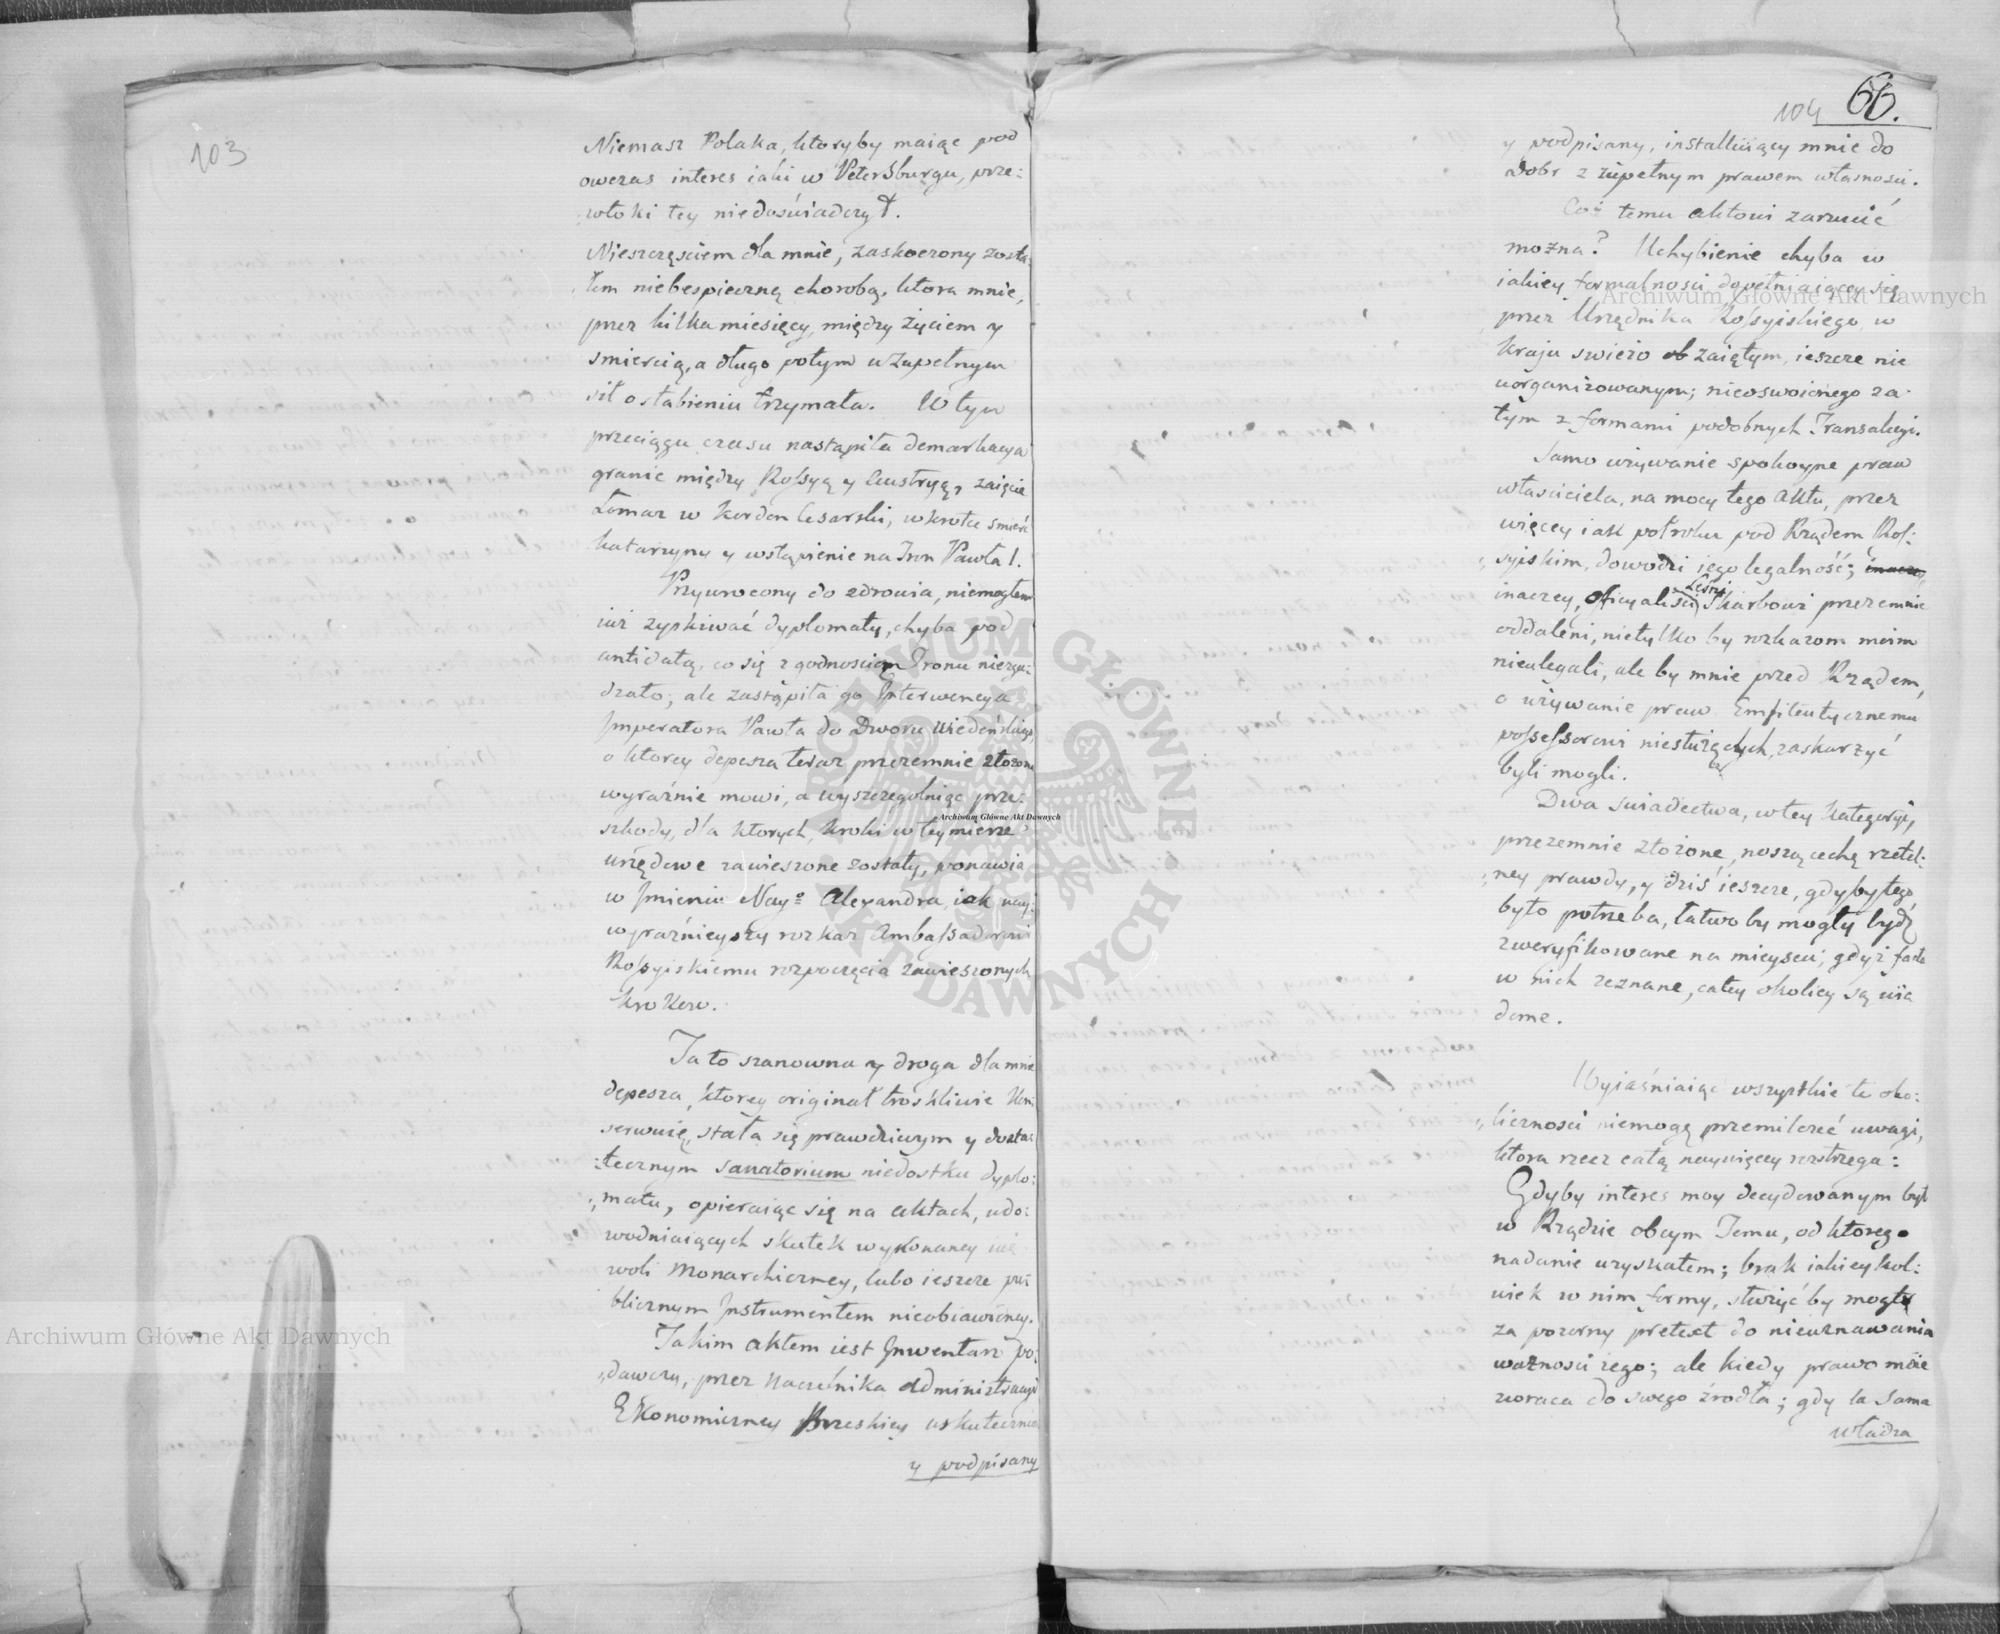 103
Niemasz Polaka, ktoryby maiąc pod
owczas interes iaki w Petersburgu, prze:
włoki tey niedoświadczył.
Nieszczęściem dla mnie, zaskoczony zosta:
łem niebespieczną chorobą, ktora mnie,
przez kilka miesięcy, między życiem y
smiercią, a długo potym w zupełnym
sił osłabieniu trzymała. W tym
przeciągu czasu nastąpiła demarkacya
granic między Rossyą y Austryą, zaięcie
Łomaz w Kordon Cesarski, wkrotce smierć
Katarzyny y wstąpienie na Tron Pawła I.
Przywrocony do zdrowia, niemogłem
iuż zyskiwać dyplomatu, chyba pod
antidatą, co się z godnoscią Tronu niezga:
dzało; ale zastąpiła go Interwencya
Imperatora Pawła do Dworu Wiedeńskiego,
o ktorey depesza teraz przezemnie złożona
wyraźnie mowi, a wyszczegolniąc prze:
szkody, dla ktorych kroki w tey mierze
urzędowe zawieszone zostały, ponawia
w Imieniu Nayo Alexandra, iak nay:
wyraźnieyszy rozkaz Ambassadorowi
Rossyiskiemu rozpoczęcia zawieszonych
krokow.
Ta to szanowna y droga dla mnie
depesza, ktorey originał troskliwie kon:
serwuię, stała się prawdziwym y dosta:
tecznym sanatorium niedostku dyplo:
matu, opieraiąc się na aktach, udo:
wodniaiących skutek wykonaney iuż
woli Monarchiczney, lubo ieszcze pu:
blicznym Instrumentem nieobiawioney.
Takim aktem iest Inwentarz po:
dawczy, przez Naczelnika Administracyi
Ekonomiczney Brzeskiey uskuteczniony
y podpisany
104 66.
y podpisany, installuiący mnie do
Dobr z zupełnym prawem własnosci.
Coż temu aktowi zarzucić
można? Uchybienie chyba w
iakiey formalnosci, dopełniaiącey się
przez Urzędnika Rossyiskiego, w
kraju swieżo zaiętym, ieszcze nie
uorganizowanym; nieoswoionego za:
tym z formami podobnych Transakcyi.
Samo używanie spokoyne praw
własciciela, na mocy tego aktu, przez
więcey iak połroku pod Rządem Ros:
syiskim, dowodzi iego legalność;
inaczey, Oficyalisci Leśni Skarbowi przezemnie
oddaleni, nietylko by rozkazom moim
nieulegali, ale by mnie przed Rządem,
o używanie praw Emfiteutycznemu
possessorowi niesłużących, zaskarżyć
byli mogli.
Dwa swiadectwa, w tey kategoryi,
przezemnie złożone, noszą cechę rzetel:
ney prawdy, y dziś ieszcze, gdyby tego
było potrzeba, łatwo by mogły bydź
zweryfikowane na mieyscu; gdyż fakta
w nich zeznane, całey okolicy są wia
dome.
Wyiaśniaiąc wszystkie te oko:
licznosci niemogę przemilczeć uwagi,
ktora rzecz całą naywięcey rozstrzega:
Gdyby interes moy decydowanym był
w Rządzie obcym Temu, od ktorego
nadanie uzyskałem; brak iakieykol:
wiek w nim formy, służyć by mogł
za pozorny pretext do nieuznawania
ważnosci iego; ale kiedy prawo moie
wraca do swego źrodła; gdy ta sama
władza
Archiwum Główne Akt Dawnych
Archiwum Główne Akt Dawnych
Archiwum Główne Akt Dawnych
ARCHIWUM GŁÓWNE AKT DAWNYCH